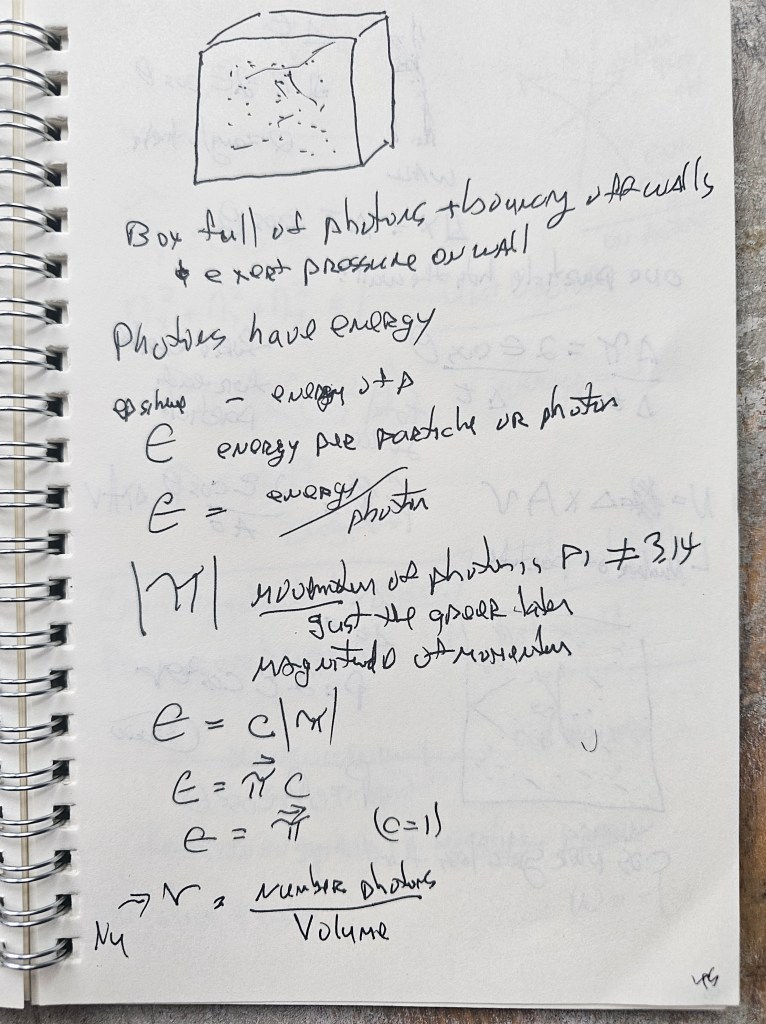 Box full of photons + bouncing off walls
& exert pressure on wall
Photons have energy
epsilon - energy of
ϵ energy per particle or photon
ϵ = energy/photon
|π| momentum of photon, is Pi ≠ 3.14
just the greek letter
magnitude of momentum
ϵ = c|π|
ϵ = π⃗ c
ϵ = π⃗ (c=1)
Nu → ν = Number photons
Volume